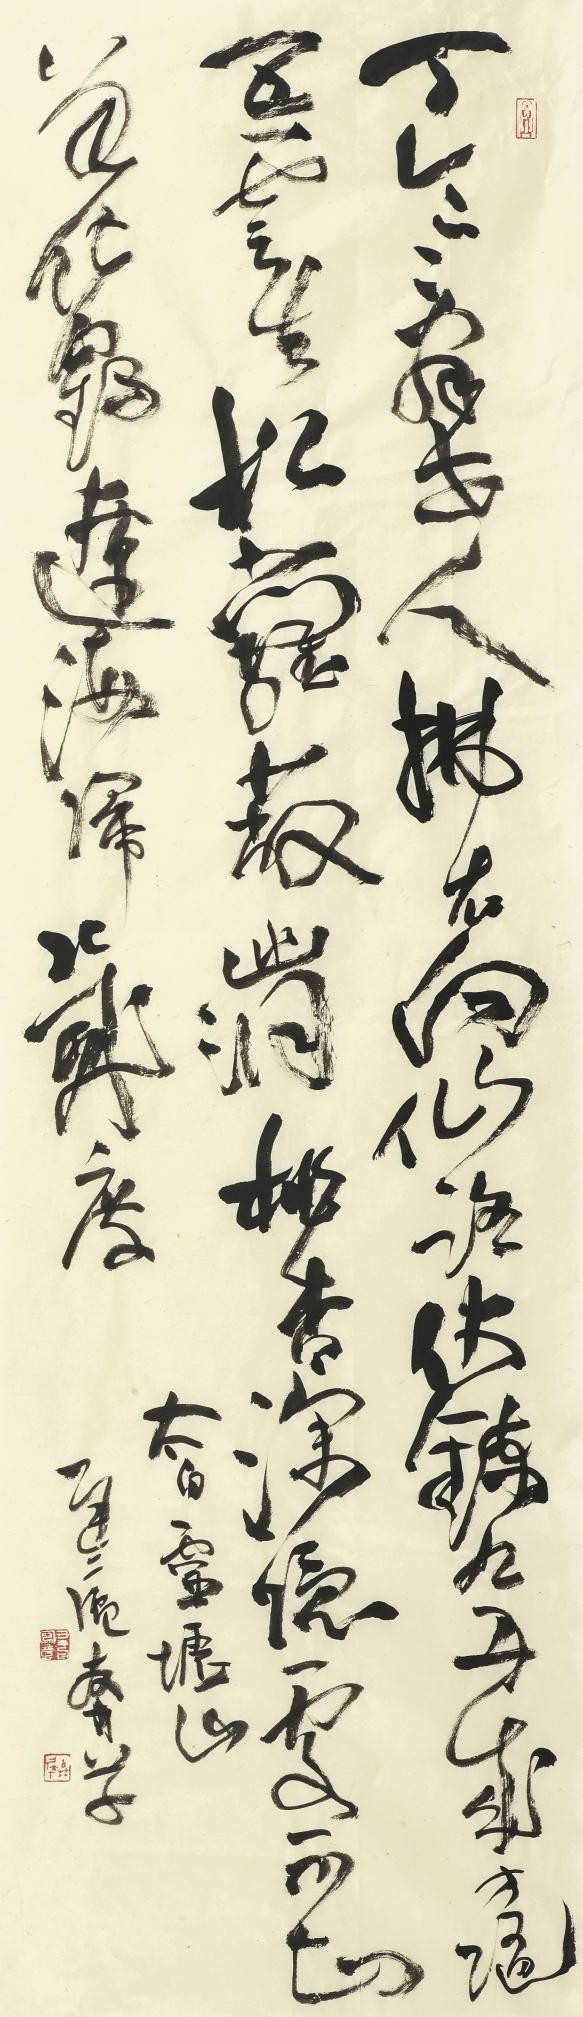 丁令辭世人拂衣向仙路伏鍊九丹成方隨
五雲去松蘿蔽幽洞桃杏深隱處不知
曾化鶴遼海歸幾度
太白靈墟山